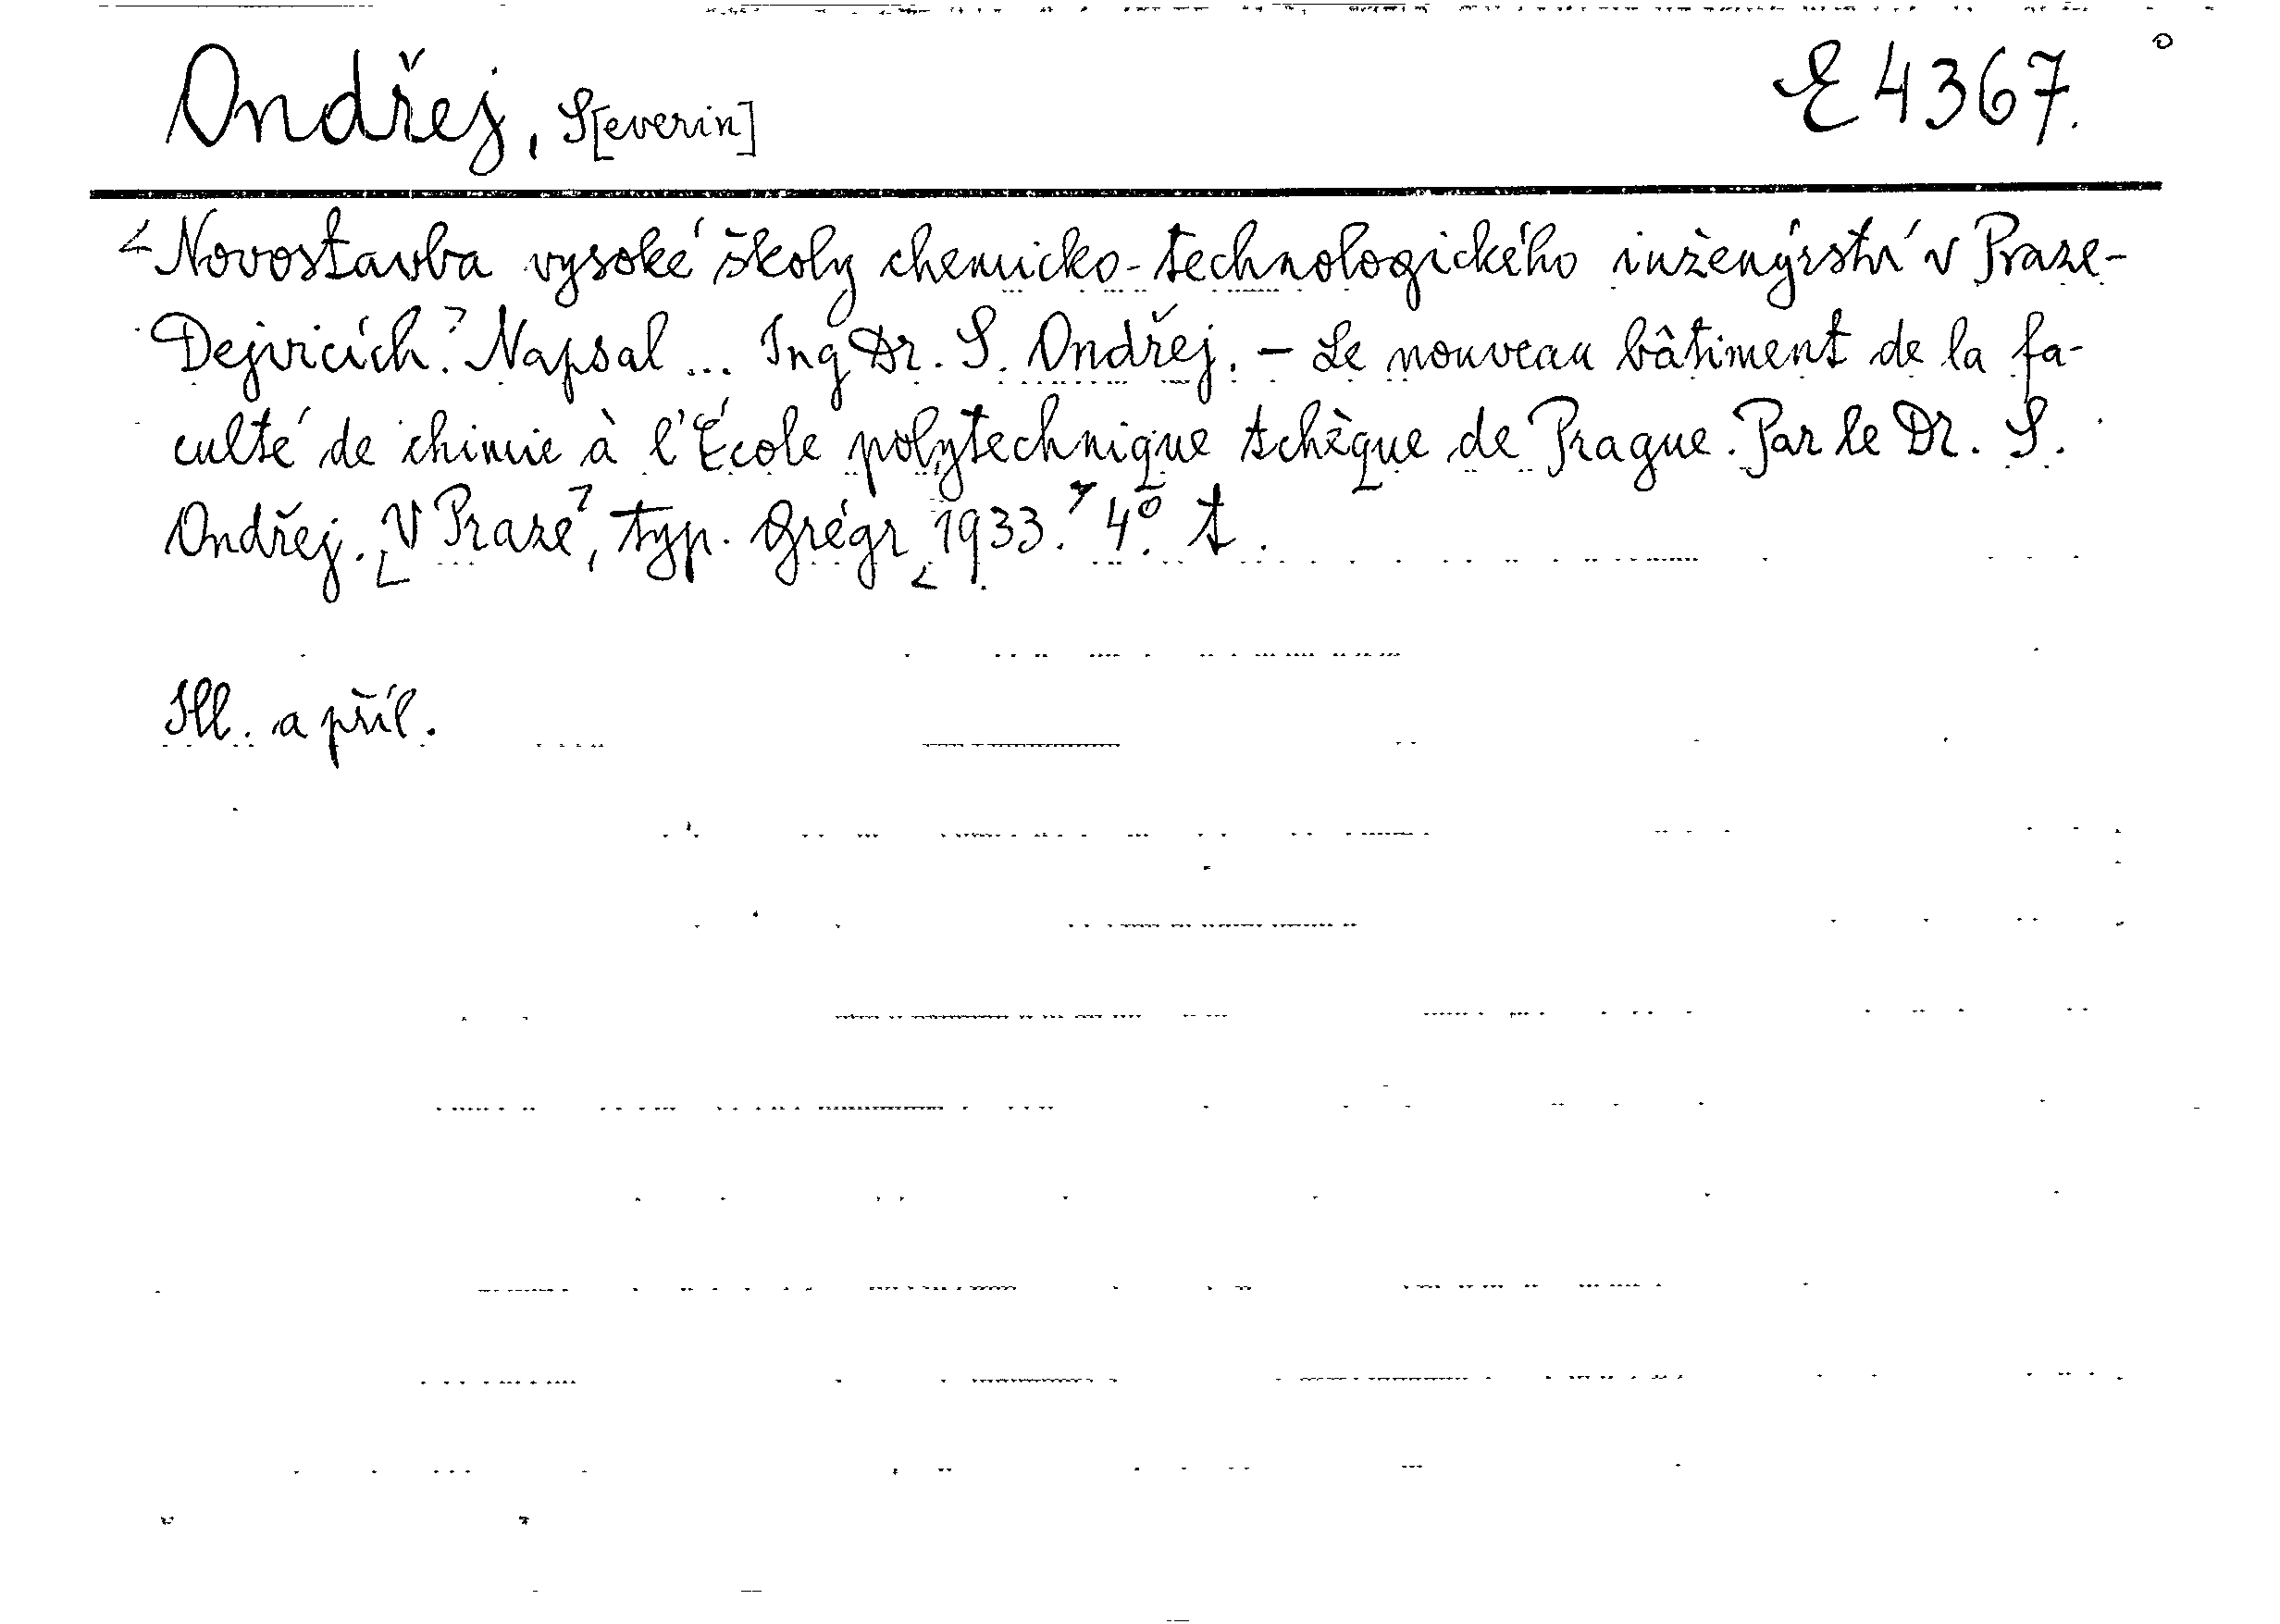 Ondřej, S[everin] E 4367.
<Novostavba vysoké školy chemicko-technologického inženýrství v Praze-
Dejvicích.> Napsal ... Ing Dr. S. Ondřej. – Le nouveau bâtiment de la fa-
culté de chimie à l'École polytechnique tchèque de Prague. Par le Dr. S.
Ondřej. <V Praze>, typ. Grégr <1933.> 4°. t.
Ill. a příl.